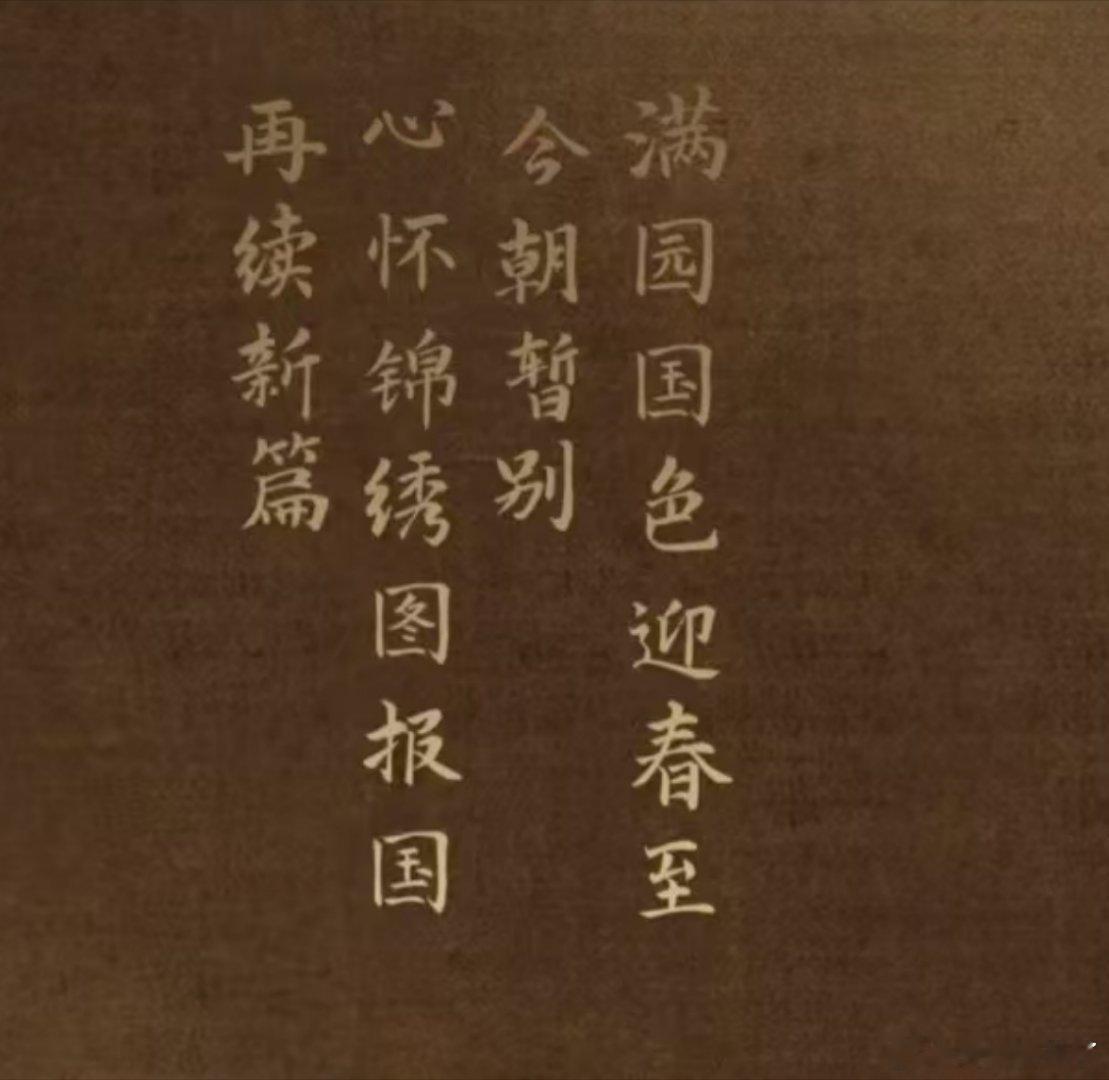 满园国色迎春至
今朝暂别
心怀锦绣图报国
再续新篇